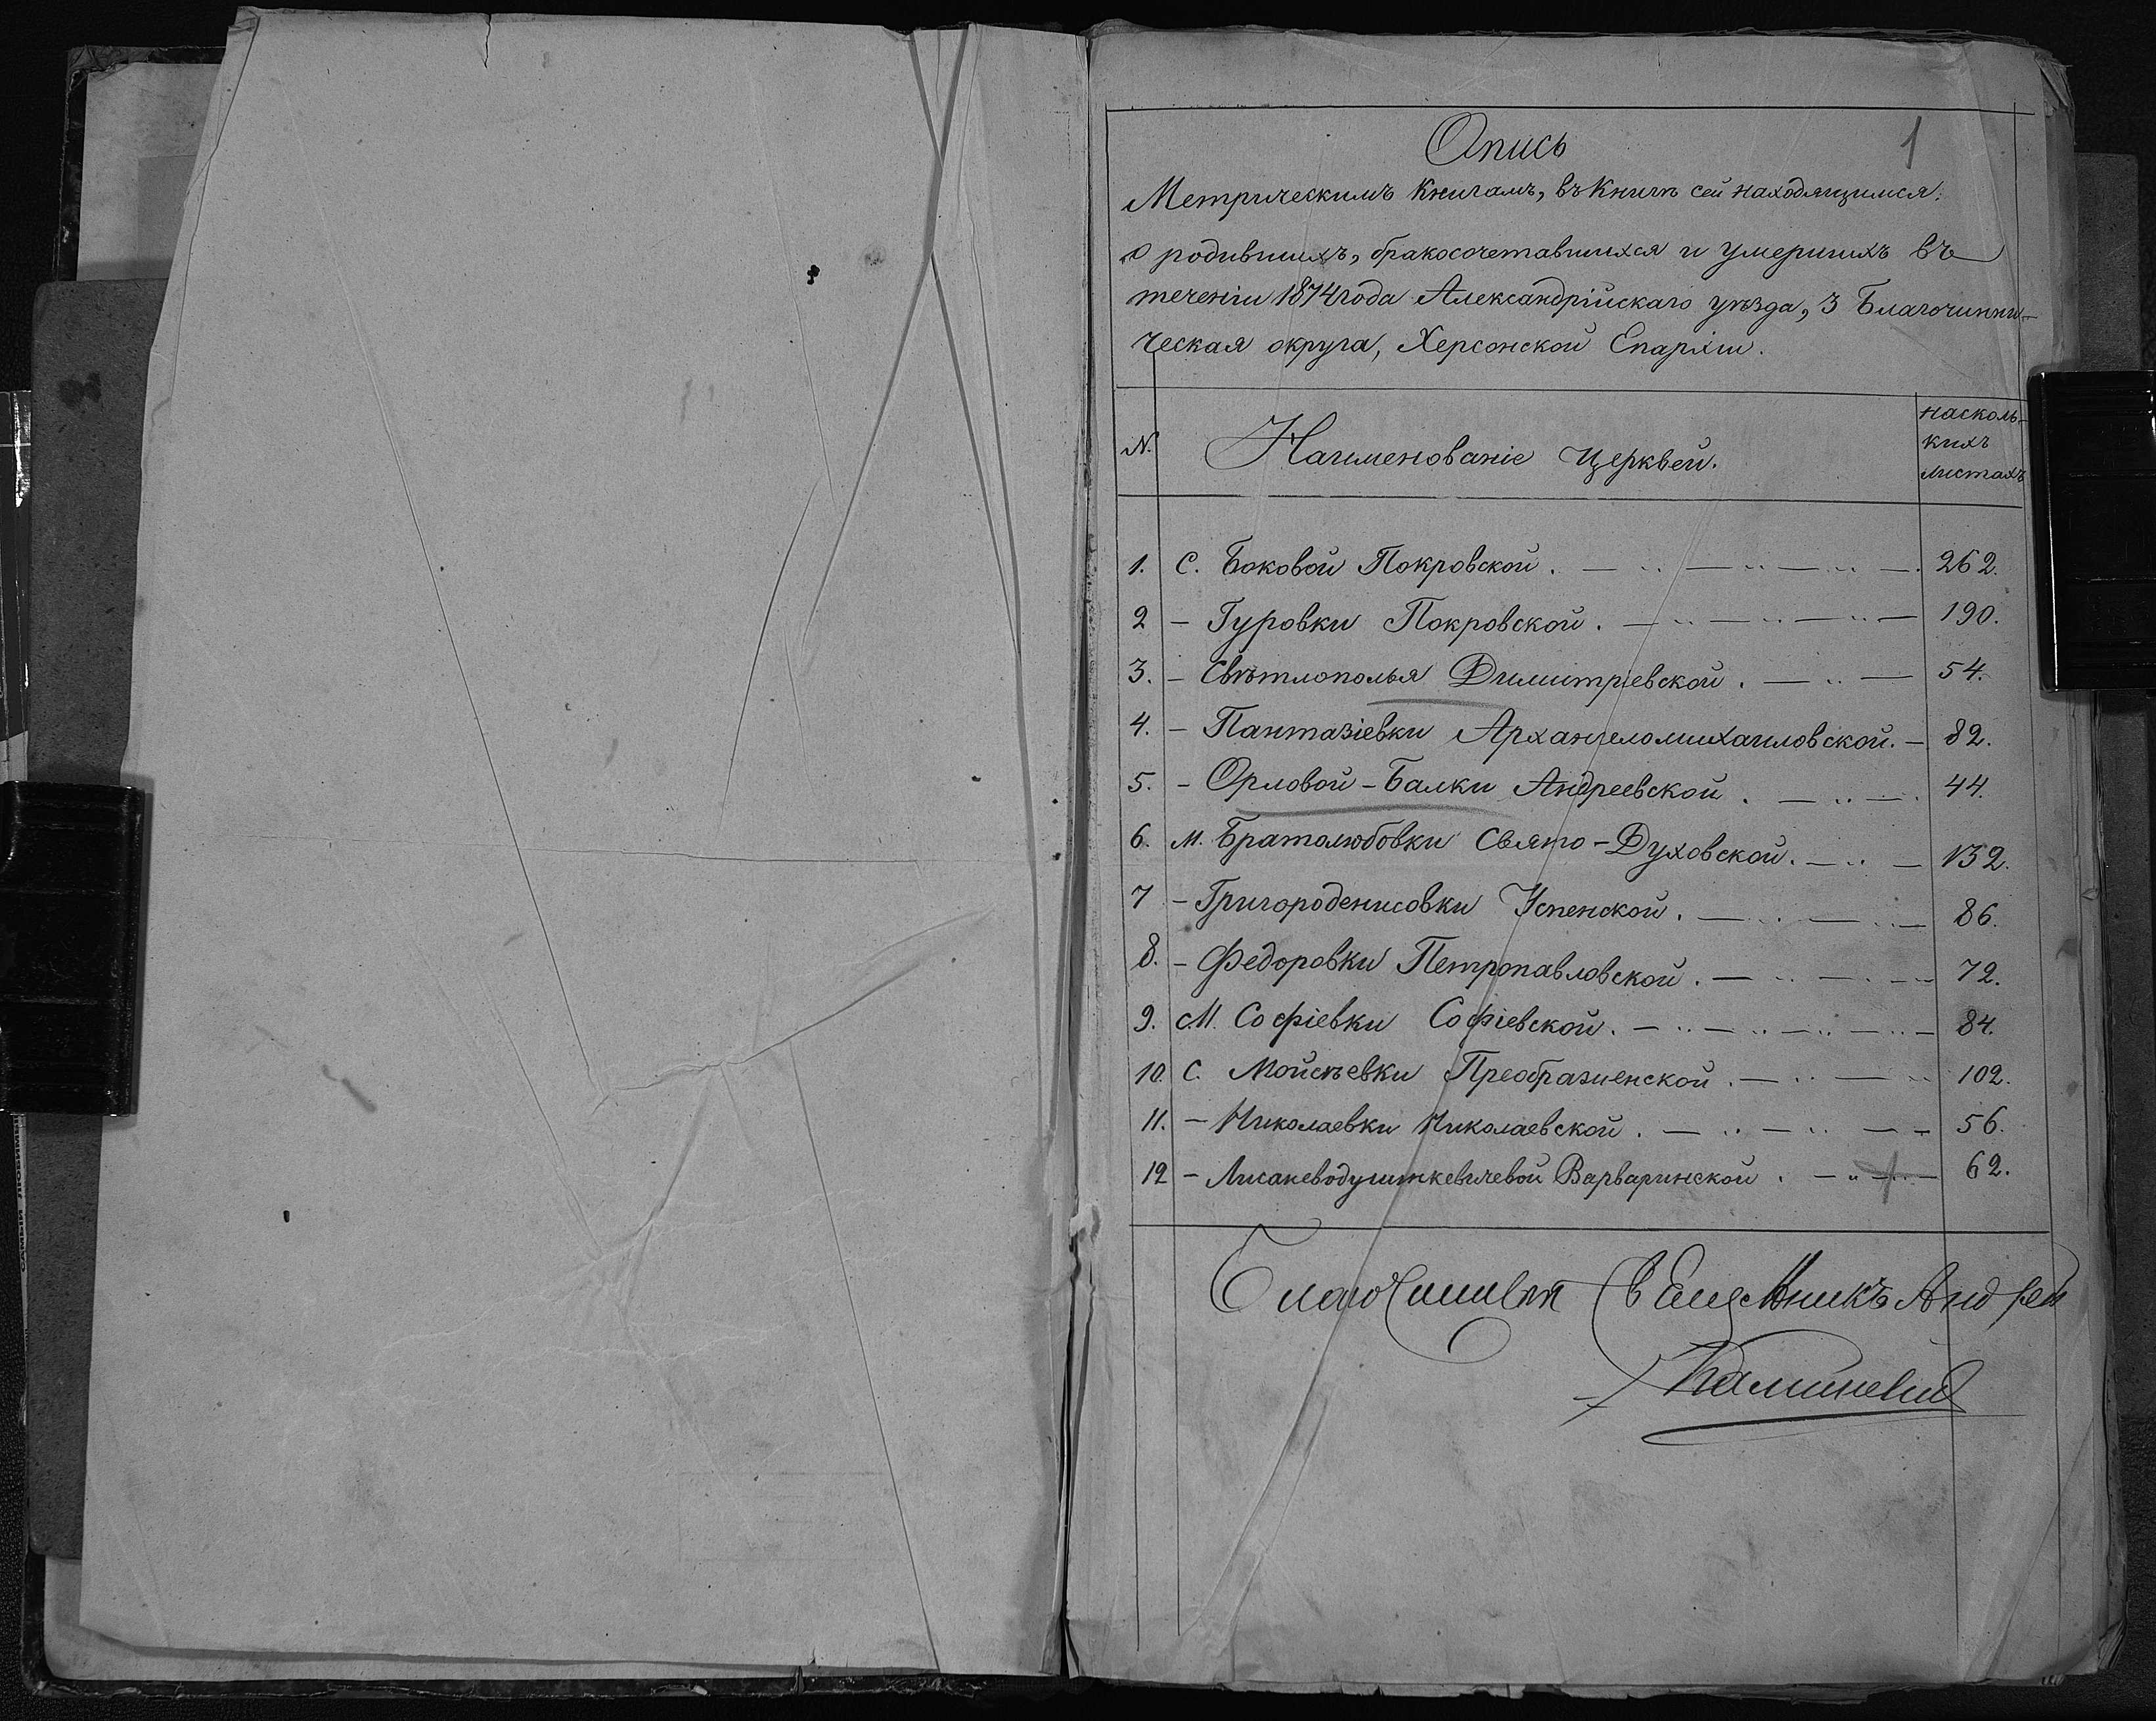 1
Опись
Метрическимъ Книгамъ, въ Книгѣ сей находящимся:
о родившихъ, бракосочетавшихся и умершихъ въ
теченіи 1874 года Александрійскаго уѣзда, 3 Благочинни-
ческая округа, Херсонской Епархіи.
N. Наименованіе Церквей. насколь-
кихъ
листахъ
1. С. Боковой Покровской. 262.
2 - Гуровки Покровской. 190.
3. - Свѣтлополья Димитріевской. 54.
4. - Пантазіевки Архангеломихаиловской. 82.
5. - Орловой-Балки Андреевской. 44.
6. М. Братолюбовки Свято-Духовской. 132.
7 - Григороденисовки Успенской. 86.
8. - Федоровки Петропавловской. 72.
9. М. Софіевки Софіевской. 84.
10. С. Мойсѣевки Преображенской. 102.
11. - Николаевки Николаевской. 56.
12 - Лисаневодушинкевичевой Варваринской. 62.
Благочинный Священникъ Андрей